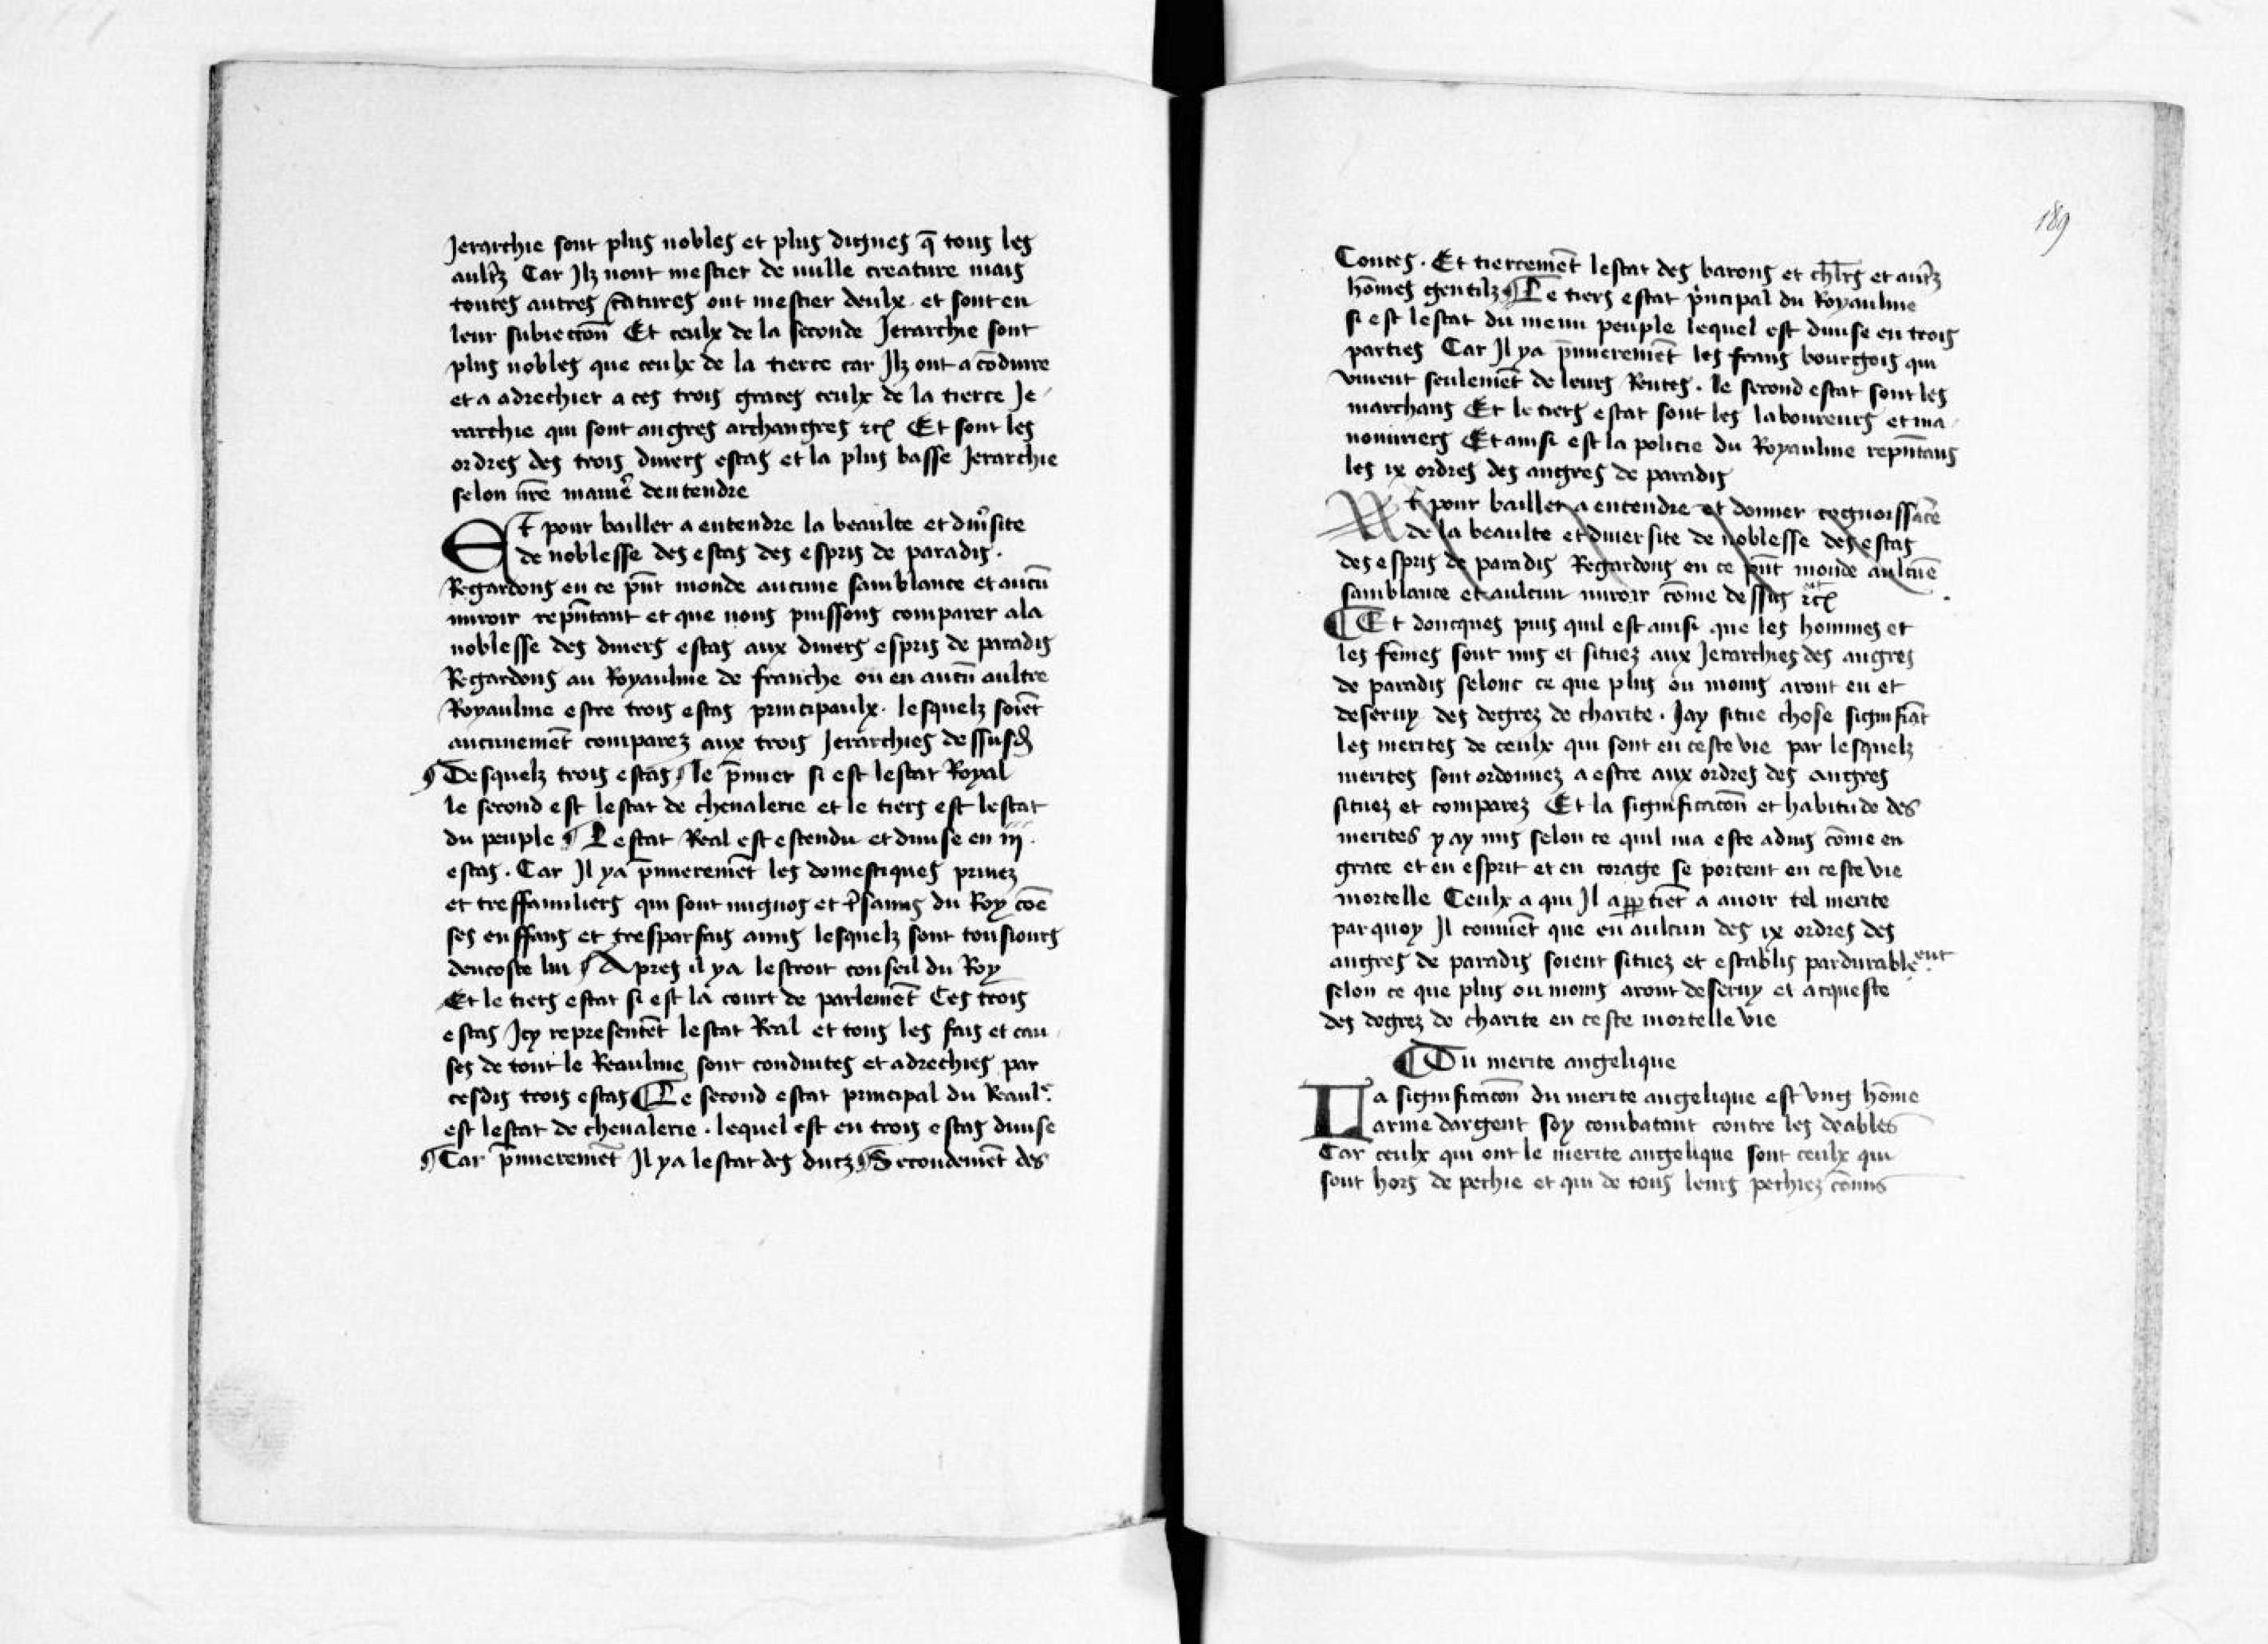 Jerarchie sont plus nobles et plus dignes q̄ tous les
aultr̄z Car Jlz nont mestier de nulle creature mais
toutes autres c̄atures ont mestier deulx. et sont en
leur subiection̄ Et ceulx de la seconde Jerarchie sont
plus nobles que ceulx de la tierce car Jlz ont a cōduire
et a adrechier a ces trois graces ceulx de la tierce Je/
rarchie qui sont angres archangres etc̄ Et sont les
ordres des trois diuers estas et la plus basse Jerarchie
selon nr̄e manie᷑ dentendre
Et pour bailler a entendre la beaulte et diu᷑site
de noblesse des estas des espris de paradis.
Regardons en ce pn̄t monde aucune samblance et aucū
miroir repn̄tant et que nous puissons comparer a la
noblesse des diuers estas aux diuers espris de paradis
Regardons au Royaulme de franche ou en aucū aultre
Royaulme estre trois estas principaulx. lesquelz soiēt
aucunemēt comparez aux trois Jerarchies dessusd̄
¶ Desquelz trois estas ¶ le p̄mier si est lestat Royal
le second est lestat de cheualerie et le tiers est lestat
du peuple ¶ Lestat Real est estendu et diuise en iij.
estas. Car Jl ya p̄mieremēt les domestiques priuez
et tresfamiliers qui sont mignos et du Roy cōe
ses enffans et tresparfais amis lesquelz sont tousiours
dencoste lui ¶ Apres il ya lestroit conseil du Roy
Et le tiers estat si est la court de parlemēt Ces trois
estas Jcy representēt lestat Real et tous les fais et cau/
ses de tout le Reaulme sont conduites et adrechies par
cesdis trois estas ¶ Le second estat principal du Reaulᵉ.
est lestat de cheualerie. lequel est en trois estas diuise
¶ Car p̄mieremēt Jl ya lestat des ducz ¶ Secondemēt des
189
Contes. Et tiercemēt lestat des barons et chl̄rs et autr̄z
hōmes gentilz ¶ Le tiers estat p̄ncipal du Royaulme
si est lestat du menu peuple lequel est diuise en trois
parties Car Jl ya p̄mieremēt les frans bourgois qui
viuent seulemēt de leurs Rentes. le second estat sont les
marchans Et le tiers estat sont les laboureurs et ma/
nouuriers Et ainsi est la policie du Royaulme repn̄tans
les ix ordres des angres de paradis
Et pour bailler a entendre et donner cognoissāce
de la beaulte et diuersite de noblesse des estas
des espris de paradis Regardons en ce pn̄t monde aulcūe
samblance et aulcun miroir cōme dessus etc̄
¶ Et doncques puis quil est ainsi que les hommes et
les fēmes sont mis et situez aux Jerarchies des angres
de paradis selonc ce que plus ou moins aront eu et
deseruy des degrez de charite. Jay situe chose signifiāt
les merites de ceulx qui sont en ceste vie par lesquelz
merites sont ordonnez a estre aux ordres des angres
situez et comparez Et la significacōn et habitude des
merites y ay mis selon ce quil ma este aduis cōme en
grace et en esprit et en corage se portent en ceste vie
mortelle Ceulx a qui Jl app̄tiēt a auoir tel merite
par quoy Jl conuiēt que en aulcun des ix ordres des
angres de paradis soient situez et establis pardurableᵉⁿᵗ.
selon ce que plus ou moins aront deseruy et acqueste
des degrez de charite en ceste mortelle vie
¶ Du merite angelique
La significacōn du merite angelique est vng hōme
arme dargent soy combatant contre les deables
Car ceulx qui ont le merite angelique sont ceulx qui
sont hors de pechie et qui de tous leurs pechiez